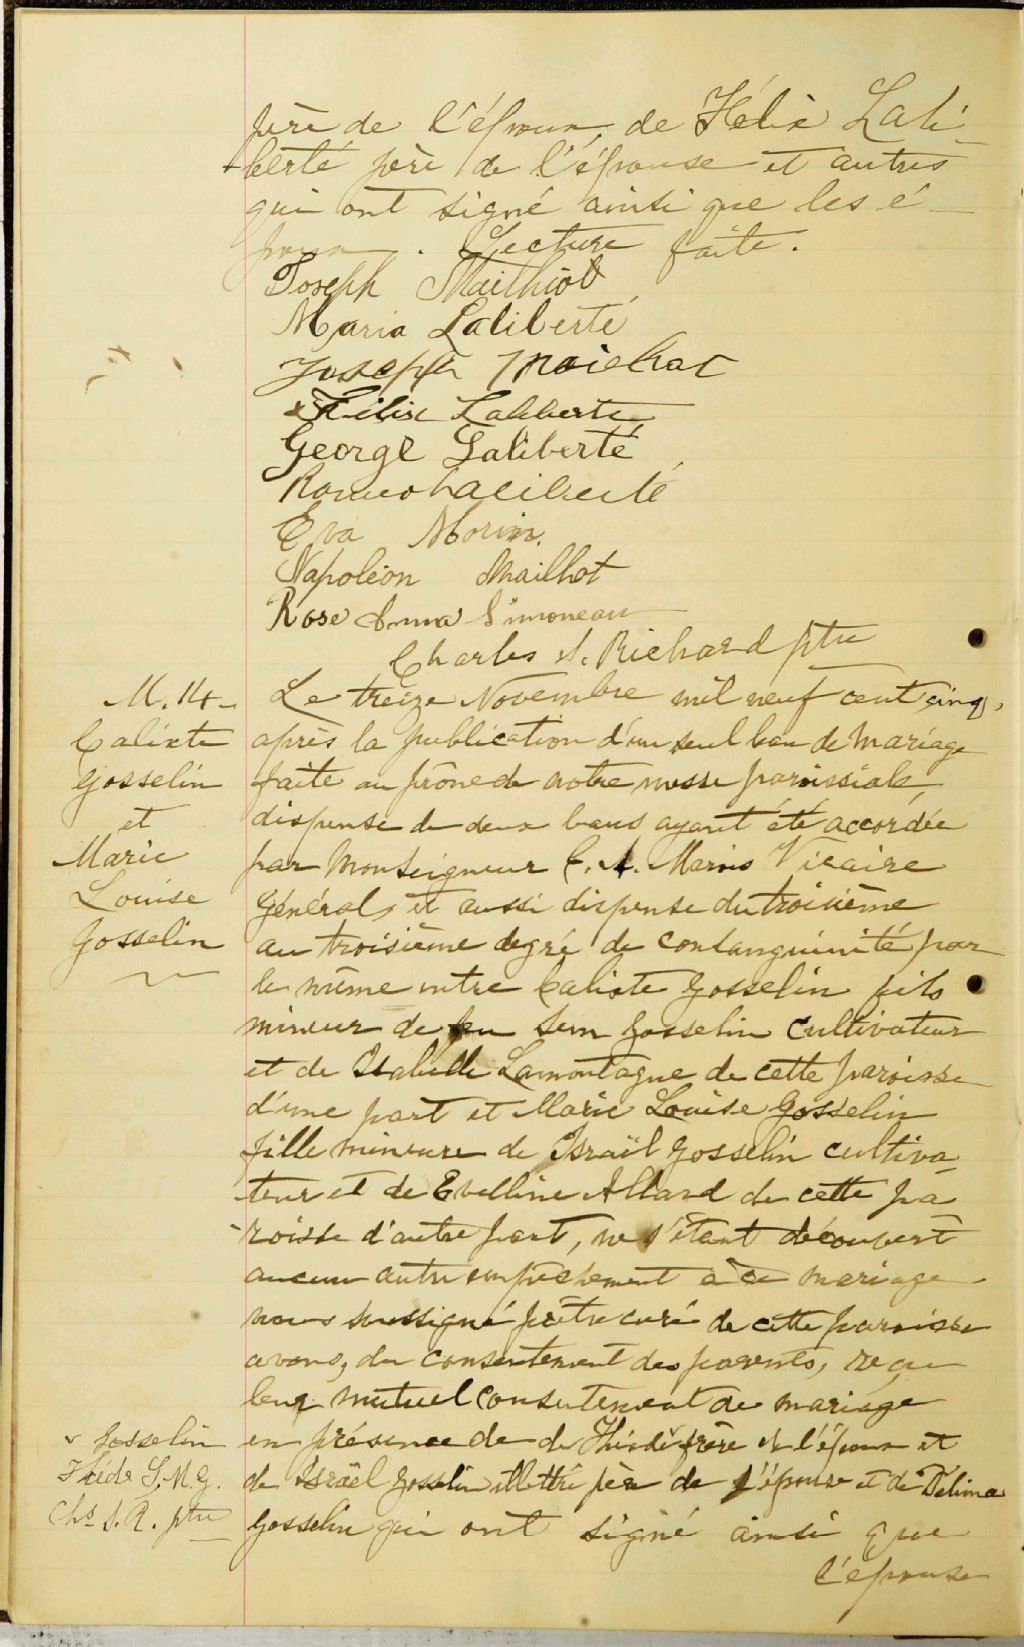 père de l'époux, de Félix Lali-
berté père de l'épouse et autres
qui ont signé ainsi que les é-
poux. Lecture faite.
Joseph Mailhiot
Maria Laliberté
Joseph
Félix Laliberte
George Laliberté
Romeo Laliberté
Eva Morin.
Napoléon Mailhot
Rose Anna Simoneau
Charles S. Richard ptre
M. 14.
Calixte
Gosselin
et
Marie
Louise
Gosselin
Le treize Novembre mil neuf cent cinq,
après la publication d'un seul ban de mariage
faite au prône de notre messe paroissiale,
dispense de deux bans ayant été accordée
par Monseigneur C. A. Marois Vicaire
Général, et aussi dispense du troisième
au troisième degré de consanguinité par
le même entre Calixte Gosselin fils
mineur de feu Gosselin cultivateur
et de Isabelle Lamontagne de cette paroisse
d'une part et Marie Louise Gosselin
fille mineure de Israïl Gosselin cultiva-
teur et de Evelline Allard de cette pa-
roisse d'autre part, ne s'étant découvert
aucun autre empêchement à ce mariage
nous soussigné prêtre curé de cette paroisse
avons, du consentement des parents, reçu
leur mutuel consentement de mariage
en présence de de Thédé frère de l'époux et
de Israël Gosselin illettré père de l'épouse et de Délima
Gosselin qui ont signé ainsi que
l'épouse
v Gosselin
Thédé S.M.G.
Chs S. R. ptre